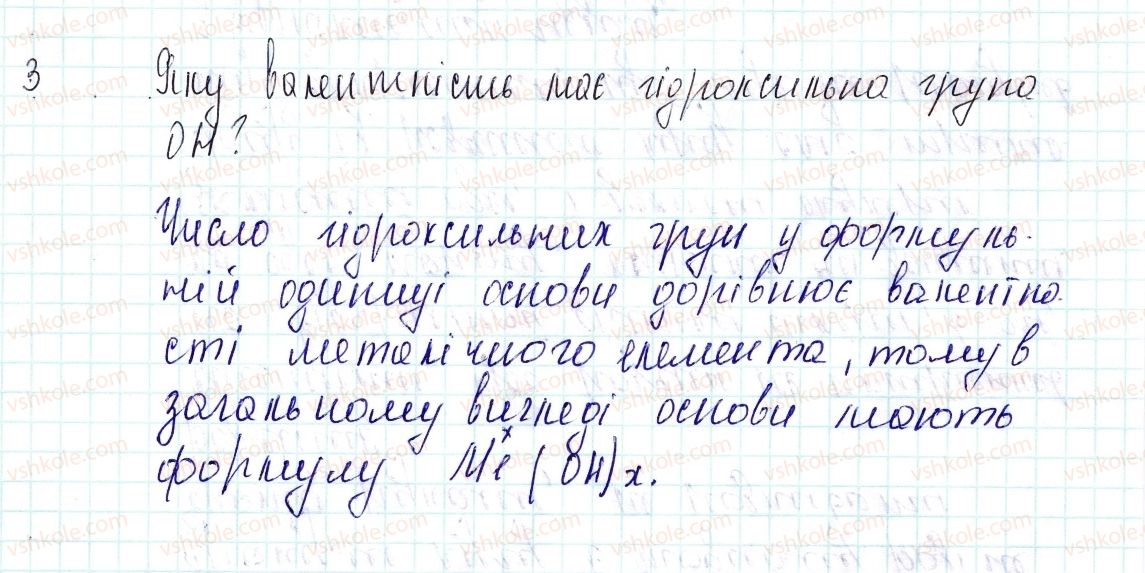 3 Яку валентність має гідроксильна група
ОН?
Число гідроксильних груп у формуль-
ній одиниці основи дорівнює валентно-
сті металічного елемента, тому в
загальному вигляді основи мають
формулу Me^x(OH)x.